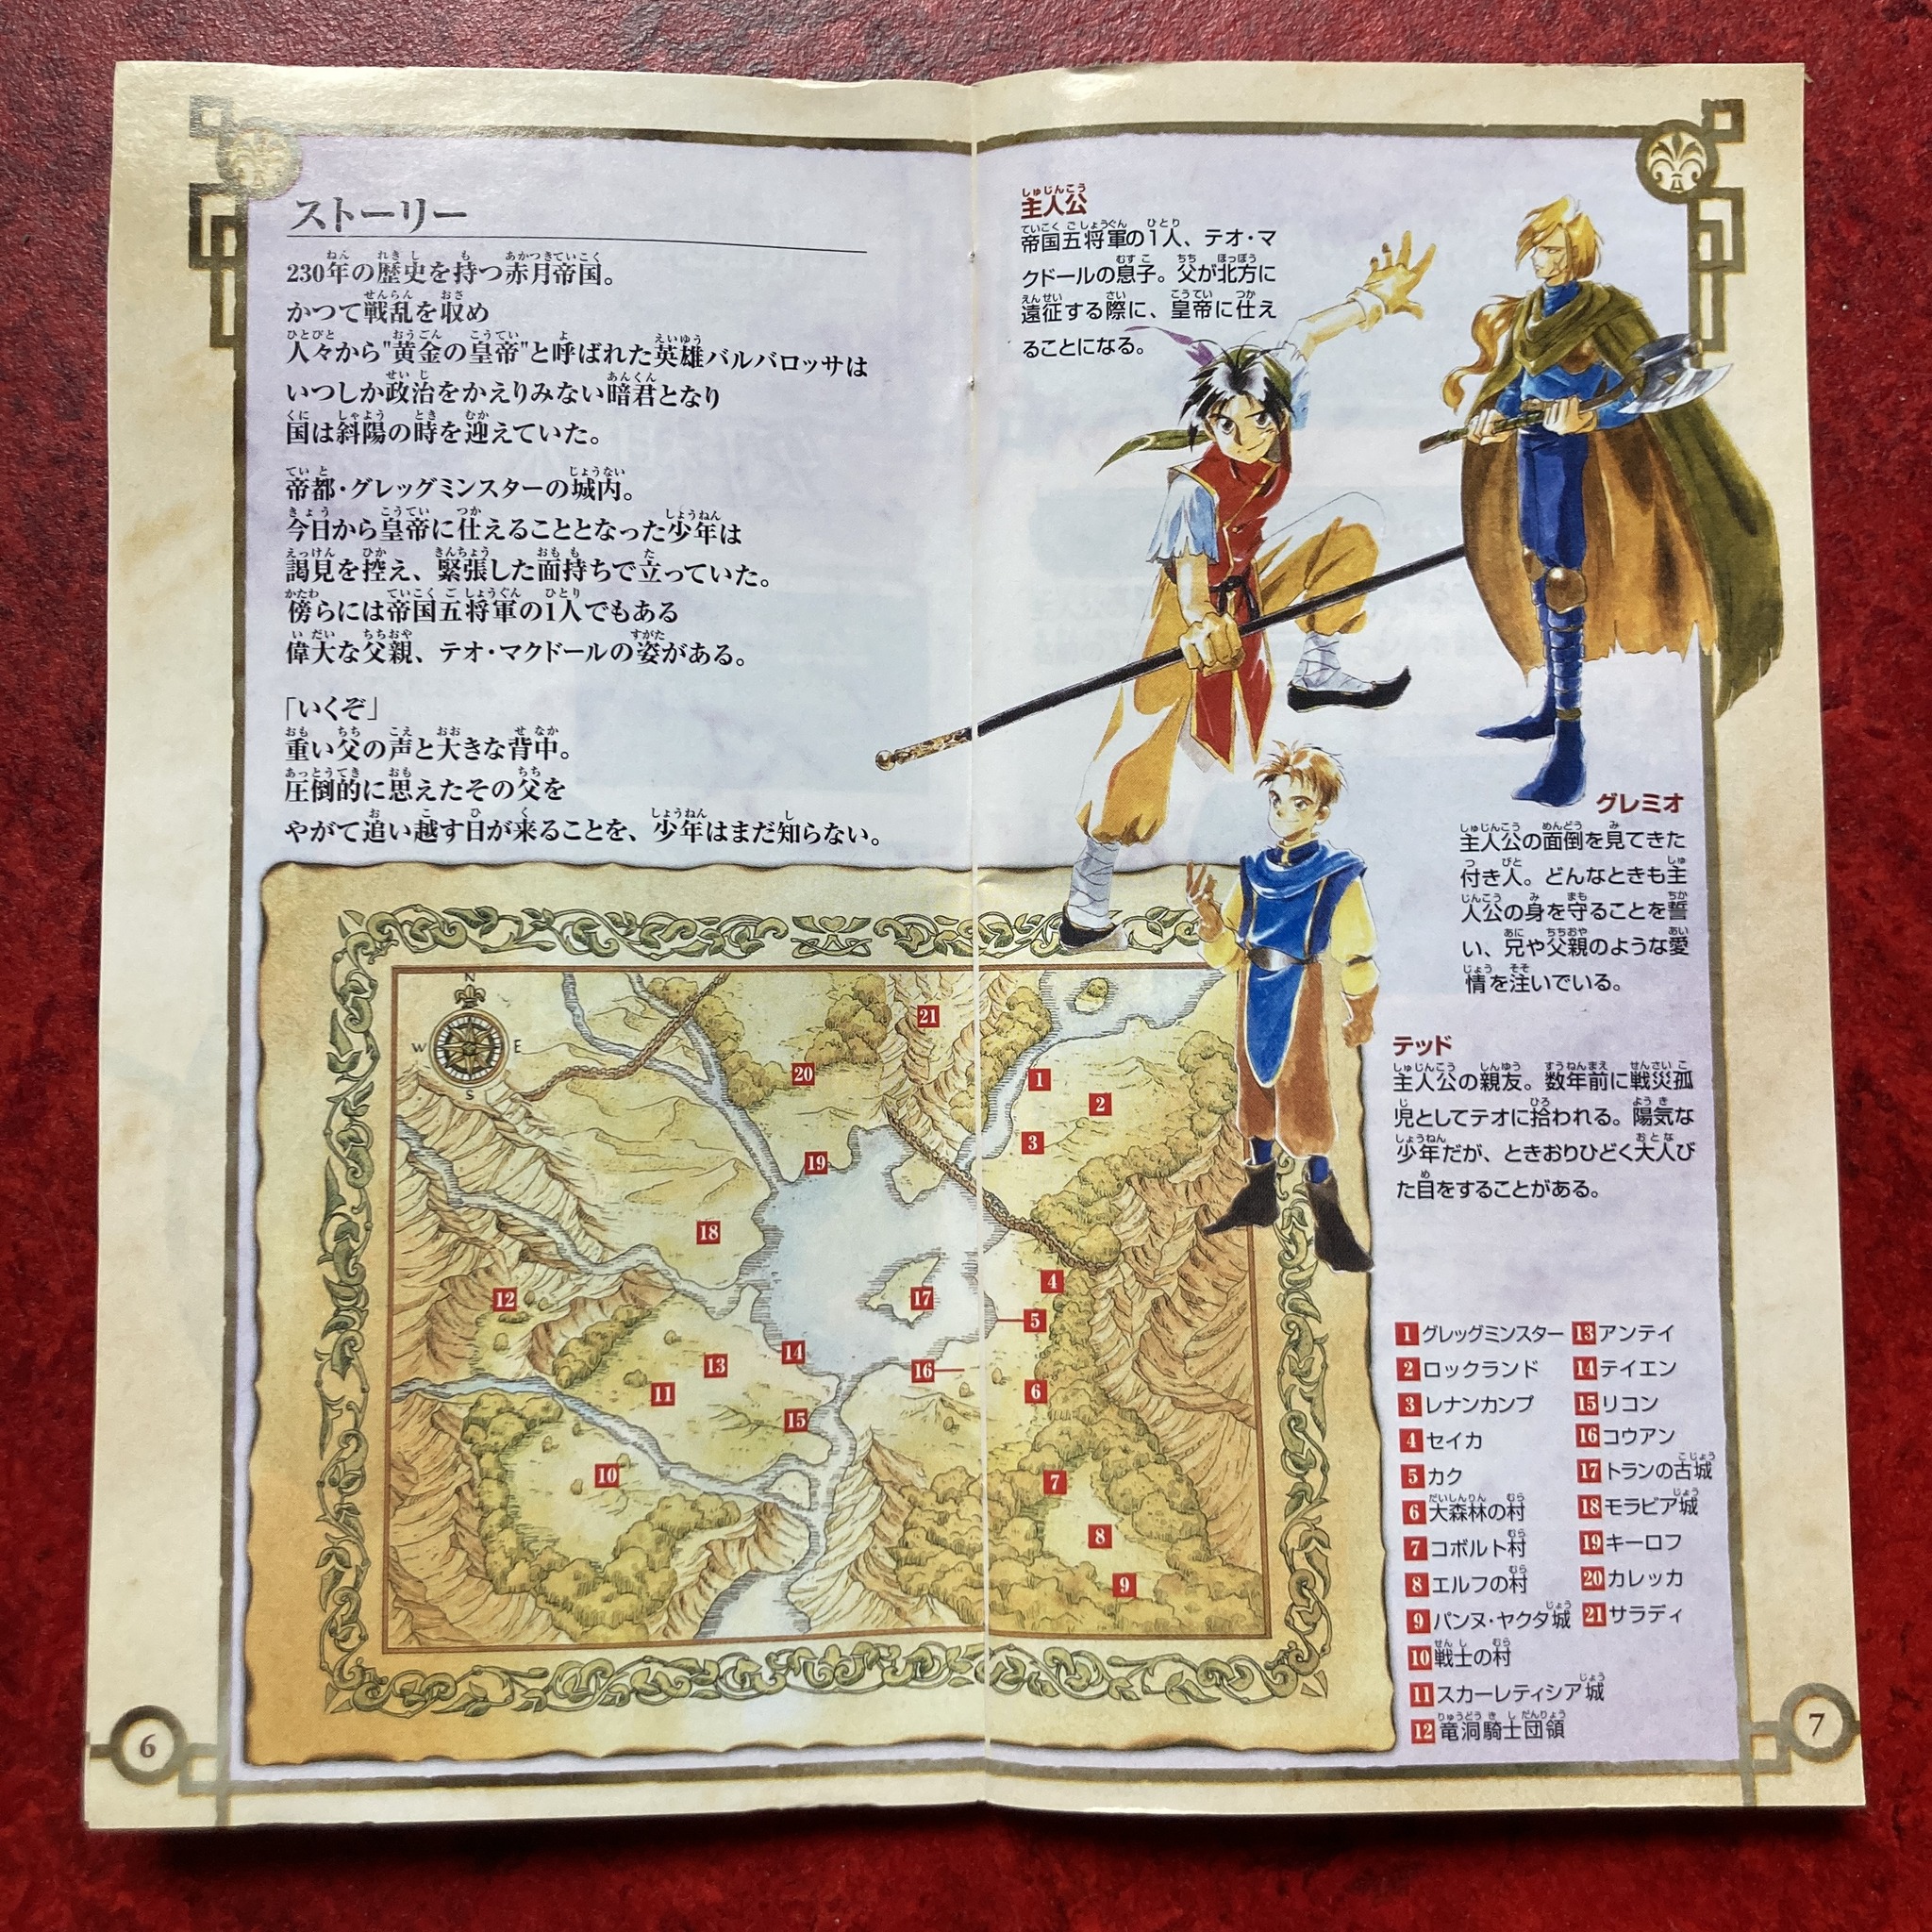 ストーリー
230年の歴史を持つ赤月帝国。
かつて戦乱を収め
人々から"黄金の皇帝"と呼ばれた英雄バルバロッサは
いつしか政治をかえりみない暗君となり
国は斜陽の時を迎えていた。
帝都・グレッグミンスターの城内。
今日から皇帝に仕えることとなった少年は
謁見を控え、緊張した面持ちで立っていた。
傍らには帝国五将軍の1人でもある
偉大な父親、テオ・マクドールの姿がある。
「いくぞ」
重い父の声と大きな背中。
圧倒的に思えたその父を
やがて追い越す日が来ることを、少年はまだ知らない。
N
W E
S
21
20
1
2
3
19
18
4
17
12
5
14
13
16
11
6
15
10
7
8
9
6
主人公
帝国五将軍の1人、テオ・マ
クドールの息子。父が北方に
遠征する際に、皇帝に仕え
ることになる。
グレミオ
主人公の面倒を見てきた
付き人。どんなときも主
人公の身を守ることを誓
い、兄や父親のような愛
情を注いでいる。
テッド
主人公の親友。数年前に戦災孤
児としてテオに拾われる。陽気な
少年だが、ときおりひどく大人び
た目をすることがある。
1 グレッグミンスター
2 ロックランド
3 レナンカンプ
4 セイカ
5 カク
6 大森林の村
7 コボルト村
8 エルフの村
9 パンヌ・ヤクタ城
10 戦士の村
11 スカーレティシア城
12 竜洞騎士団領
13 アンテイ
14 テイエン
15 リコン
16 コウアン
17 トランの古城
18 モラビア城
19 キーロフ
20 カレッカ
21 サラディ
7